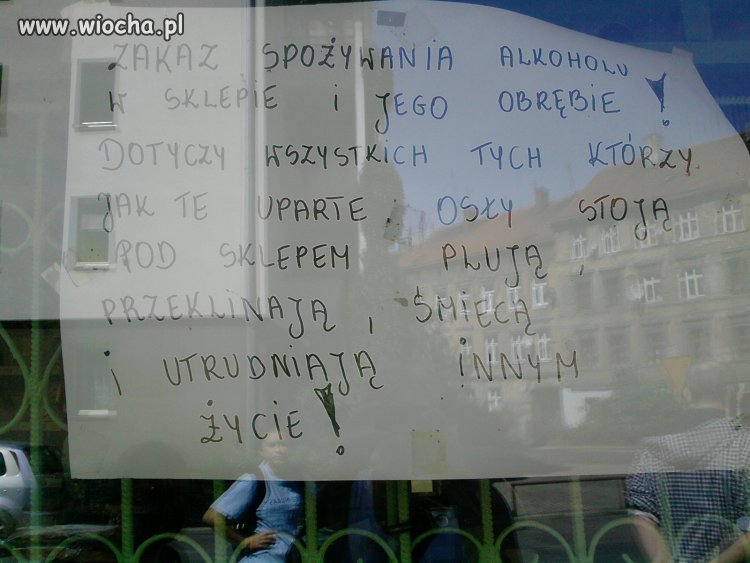 www.wiocha.pl
ZAKAZ SPOŻYWANIA ALKOHOLU
W SKLEPIE i JEGO OBRĘBIE !
DOTYCZY WSZYSTKICH TYCH KTÓRZY
JAK TE UPARTE OSŁY STOJĄ
POD SKLEPEM PLUJĄ ,
PRZEKLINAJĄ , ŚMIECĄ
i UTRUDNIAJĄ INNYM
ŻYCIE !